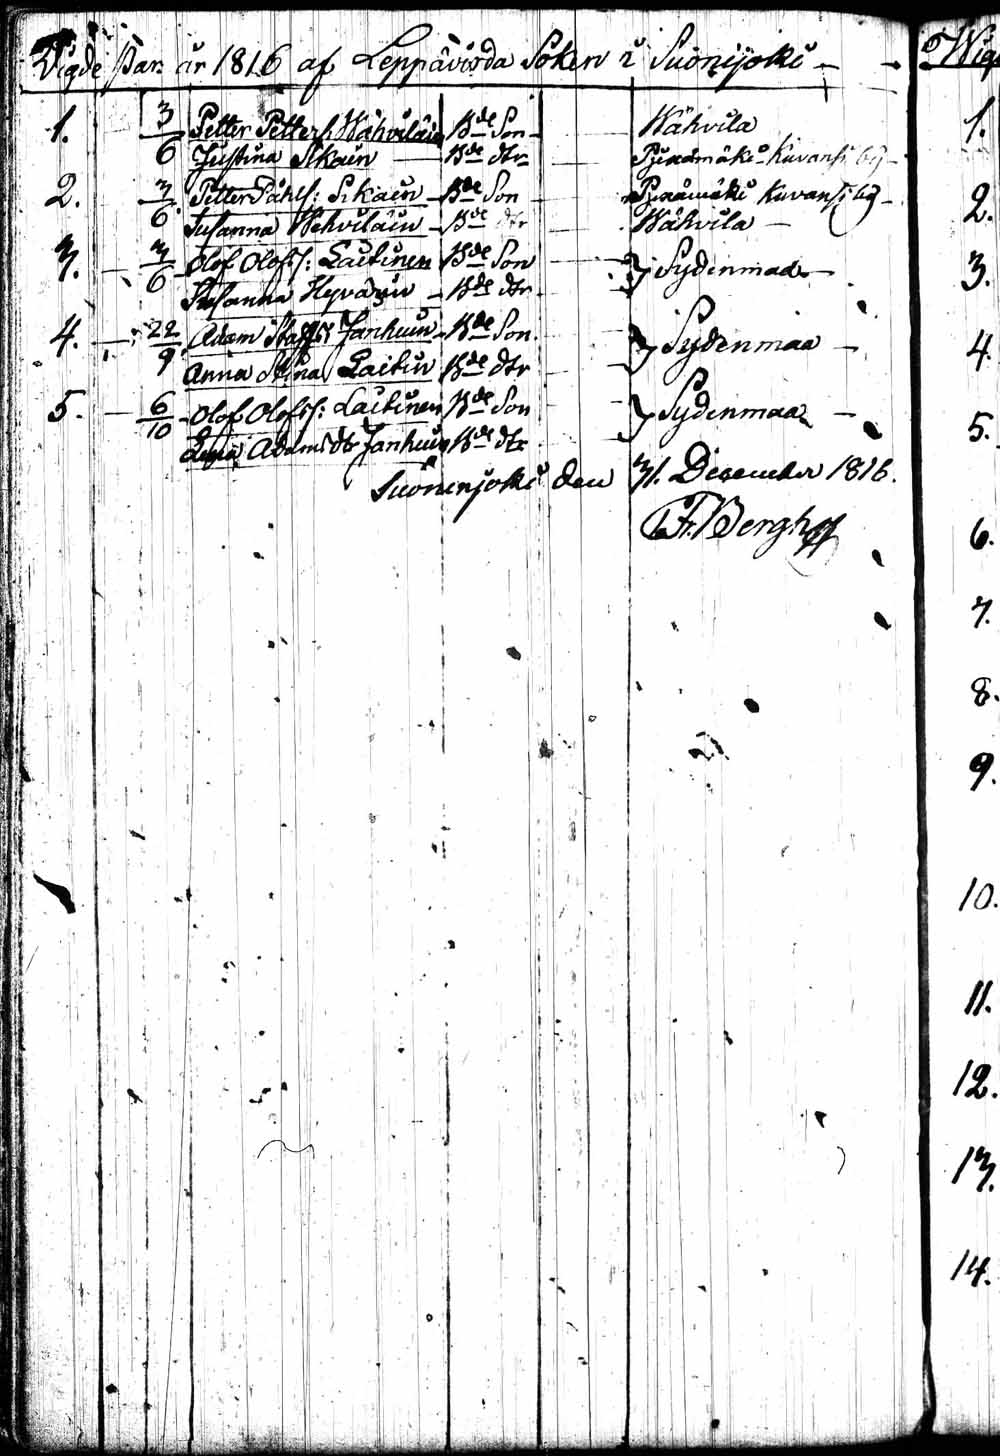 Vigde Par år 1816 af Leppävirda Soken i Suonijoki
1. 3/6 Petter Petters: Wähviläin Bde Son Wähvila
Justina Sikain Bde dtr Kuvansi by
2. 3/6 Petter Påhls: Sikain Bde Son Kuvansi by
Susanna Wehviläin Bde dtr Wähvila
3. 3/6 Olof Olofss: Laitinen Bde Son } Sydenmaa
Susanna Hyvärin Bde dtr
4. 22/9 Adam Staffs Janhuin Bde Son } Sydenmaa
Anna Stina Laitin Bde dtr
5. 6/10 Olof Olofss: Laitinen Bde Son } Sydenmaa
Adams dtr Janhuin Bde dtr
Suonenjoki den 31. December 1816.
Fr. Bergh
Wig
1.
2.
3.
4.
5.
6.
7.
8.
9.
10.
11.
12.
13.
14.